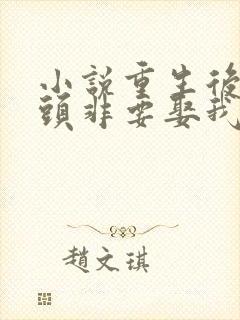 小說重生後
頭非要娶我
趙文琪